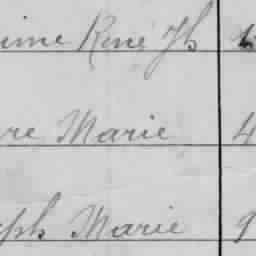 ime René Jh
re Marie 4
eph Marie 9